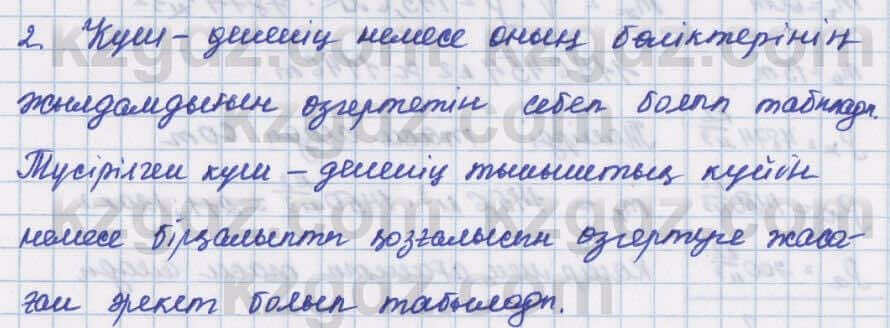 2. Күш – дененің немесе оның бөліктерінің
жылдамдығын өзгертетін себеп болып табылады.
Түсірілген күш – дененің тыныштық күйін
немесе бірқалыпты қозғалысын өзгертуге жаса-
ған әрекет болып табылады.
kzgdz.com